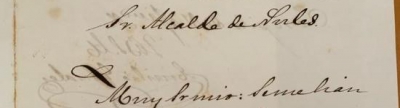 Sr. Alcalde de Aviles.
Muy Sr mio: Se me lian